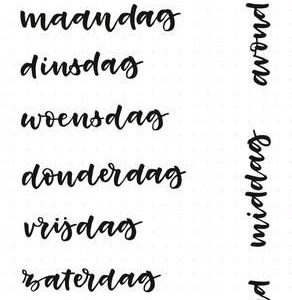 maandag
dinsdag
woensdag
donderdag
vrijdag
zaterdag
avond
middag